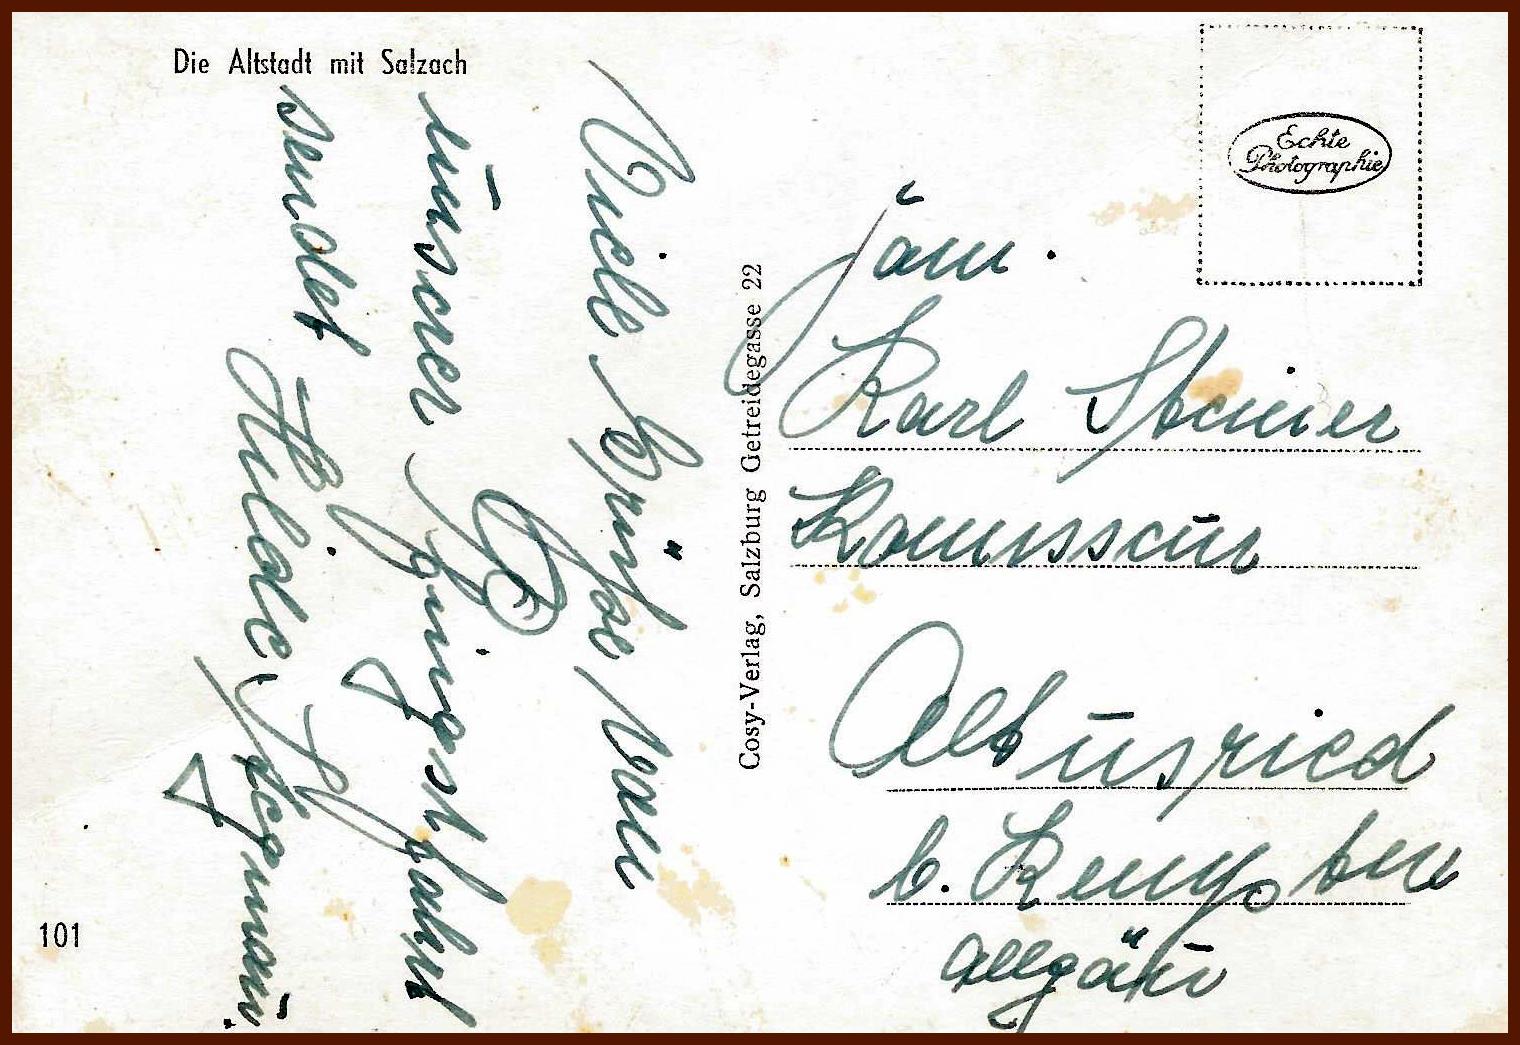 Die Altstadt mit Salzach
Viele Grüße von
unserer Pfingstfahrt
sendet Hilde
Echte
Photographie
Fam.
Karl Steiner
Altusried
b. Kempten
Allgäu
Cosy-Verlag, Salzburg Getreidegasse 22
101